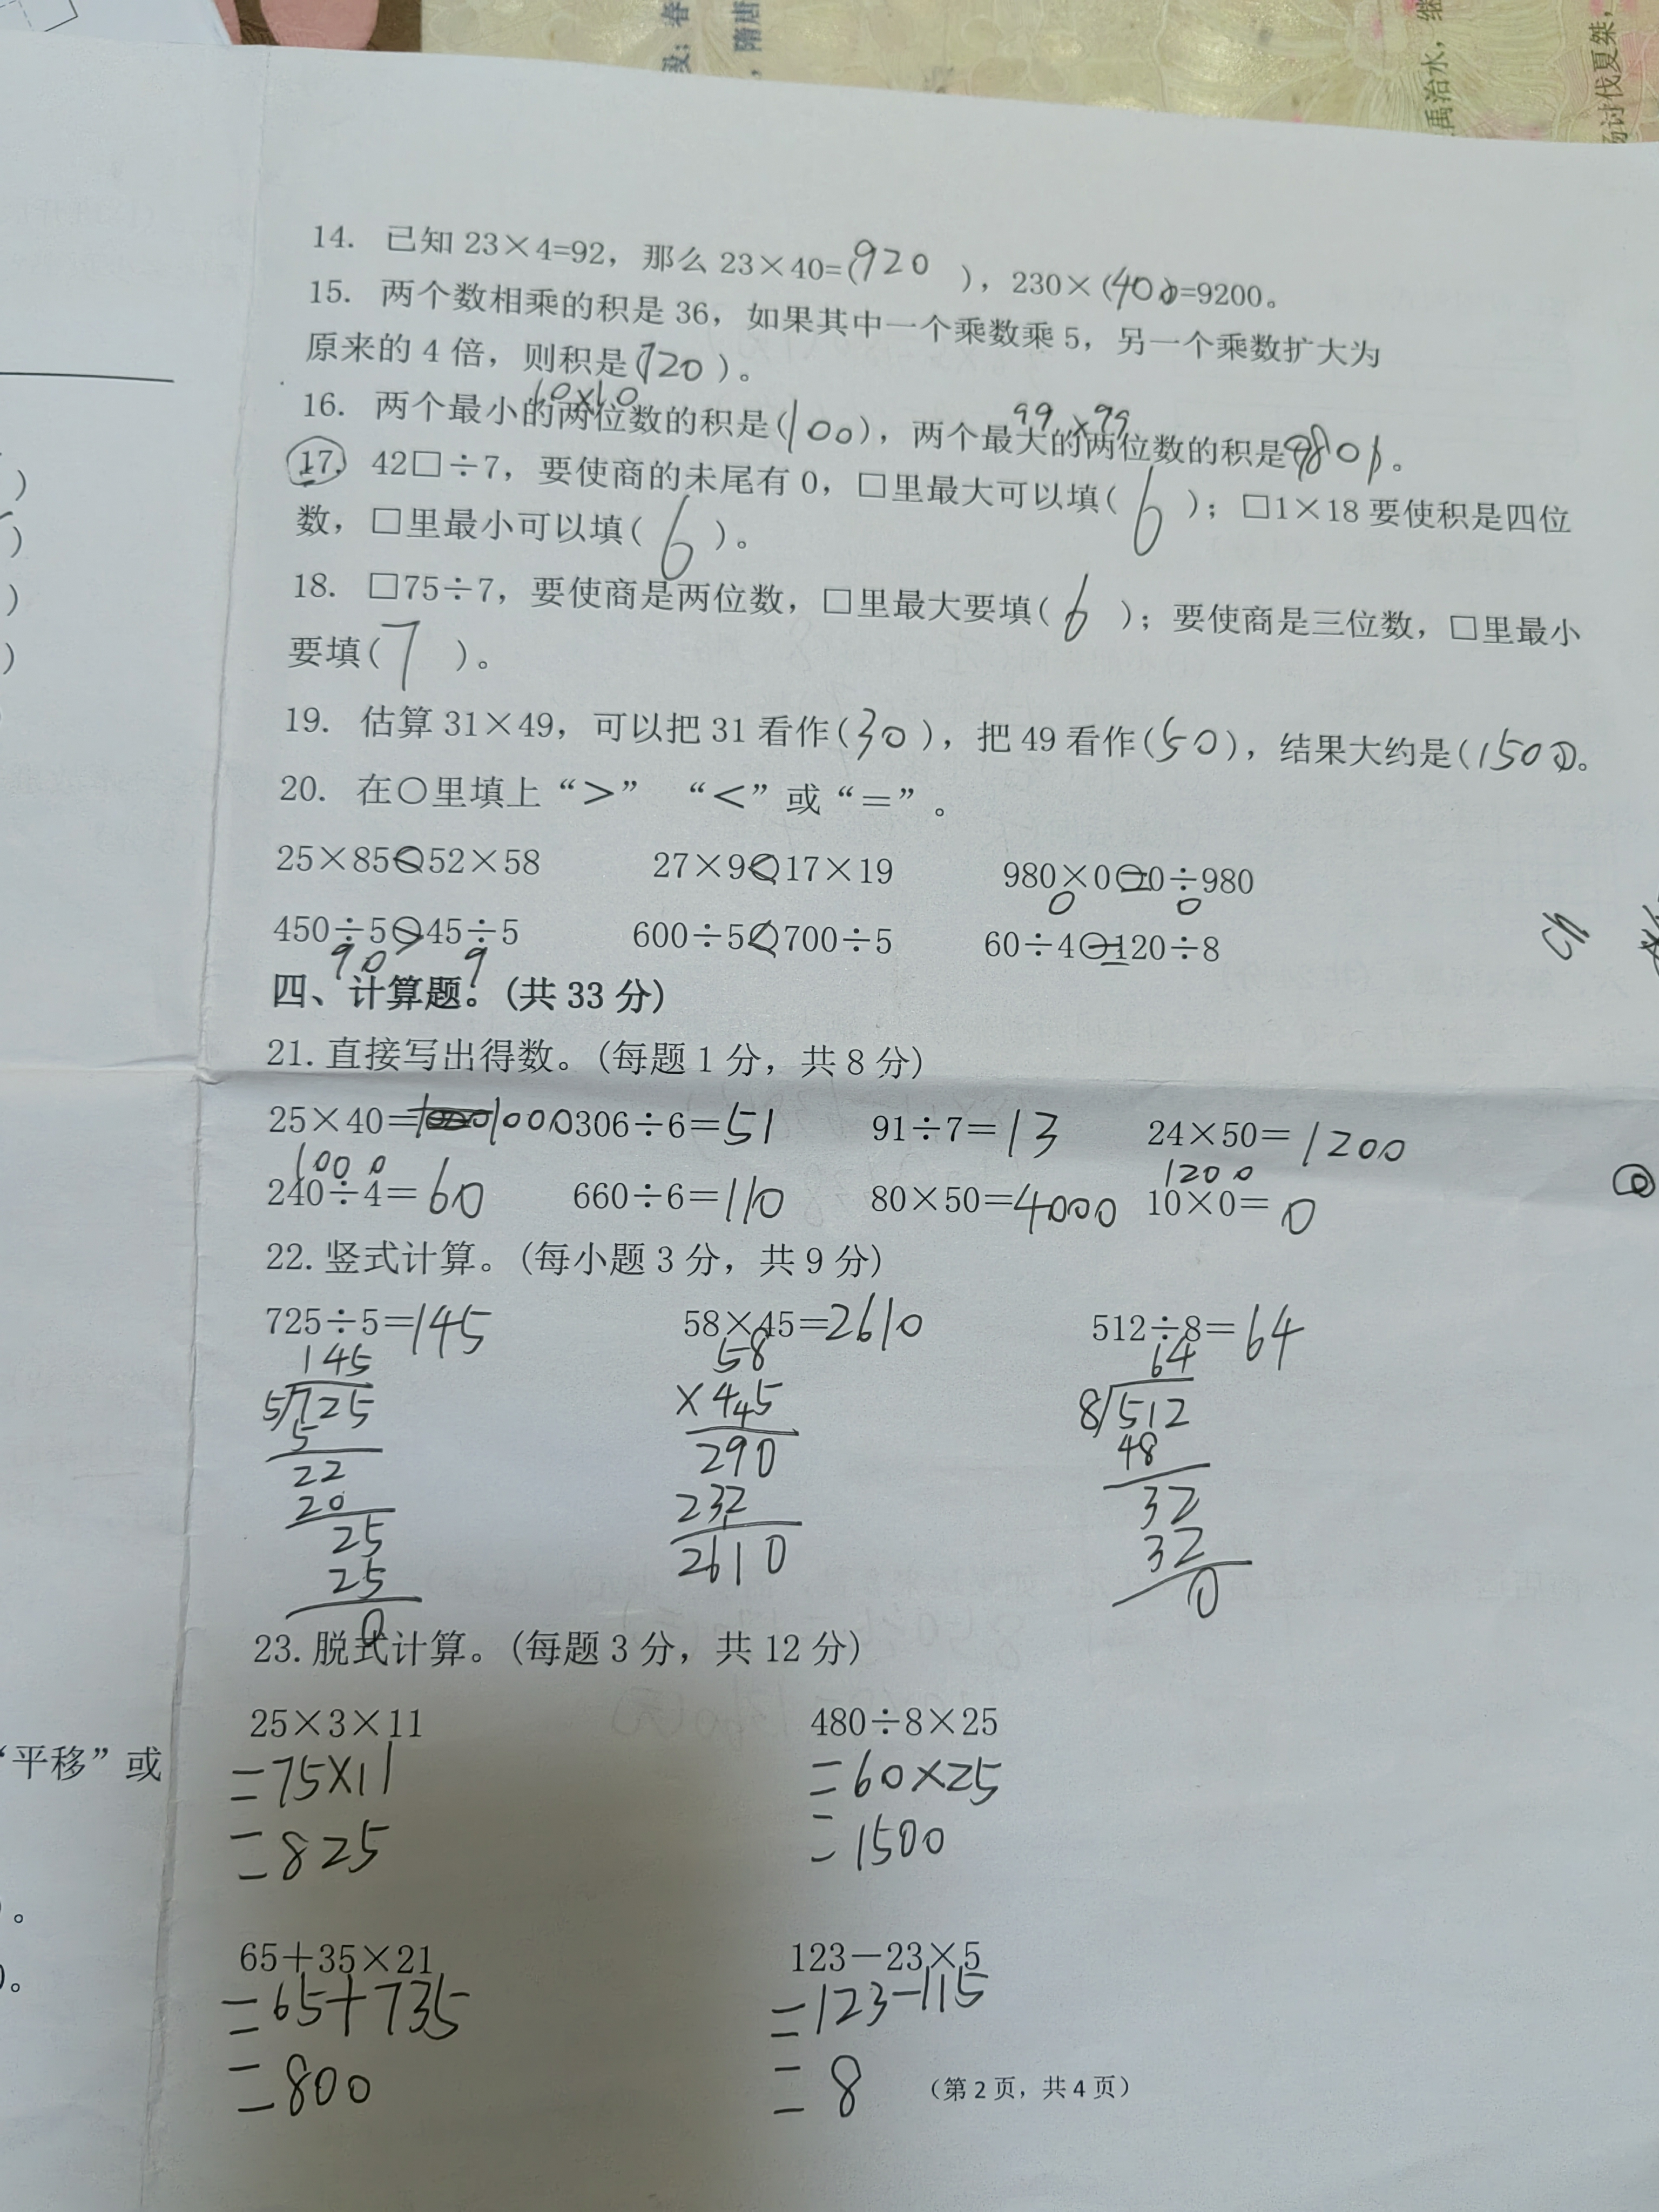 段；春
，隋唐
禹治水，继
汤讨伐夏桀，
14. 已知 23×4=92，那么 23×40=(920 )，230×(400=9200。
15. 两个数相乘的积是 36，如果其中一个乘数乘 5，另一个乘数扩大为
原来的 4 倍，则积是(720 )。
10×10
99 ×99
16. 两个最小的两位数的积是(100)，两个最大的两位数的积是9801。
17. 42□÷7，要使商的末尾有 0，□里最大可以填( 6 )；□1×18 要使积是四位
数，□里最小可以填( 6 )。
18. □75÷7，要使商是两位数，□里最大要填( 6 )；要使商是三位数，□里最小
要填(7 )。
19. 估算 31×49，可以把 31 看作(30 )，把 49 看作(50)，结果大约是(1500)。
20. 在○里填上“＞” “＜”或“＝”。
25×85<52×58 27×9<17×19 980×0=0÷980
0 0
450÷5>45÷5 600÷5<700÷5 60÷4=120÷8
90 9
四、计算题。(共 33 分)
21.直接写出得数。(每题 1 分，共 8 分)
25×40=1000 306÷6=51 91÷7=13 24×50=1200
1000 1200
240÷4=60 660÷6=110 80×50=4000 10×0=0
22.竖式计算。(每小题 3 分，共 9 分)
725÷5=145 58×45=2610 512÷8=64
145 58 64
5/725 ×445 8/512
5 290 48
22 232 32
20 2610 32
25 0
25
0
23.脱式计算。(每题 3 分，共 12 分)
25×3×11 480÷8×25
=75×11 =60×25
=825 =1500
65+35×21 123-23×5
=65+735 =123-115
=800 =8
(第 2 页，共 4 页)
)
)
)
)
“平移”或
。
)。